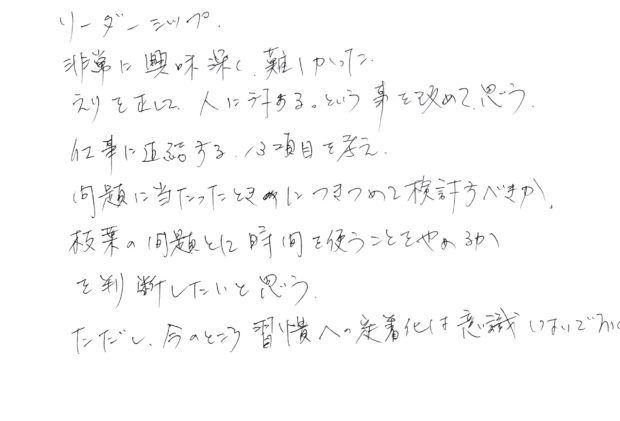 リーダーシップ.
非常に興味深く、難しかった.
えりを正して、人に対する。という事を改めて、思う.
仕事に直結する、13項目を考え.
問題に当たったときにつきつめて検討すべきか.
枝葉の問題とし時間を使うことをやめるか
を判断したいと思う.
ただし、今のところ習慣への定着化は意識